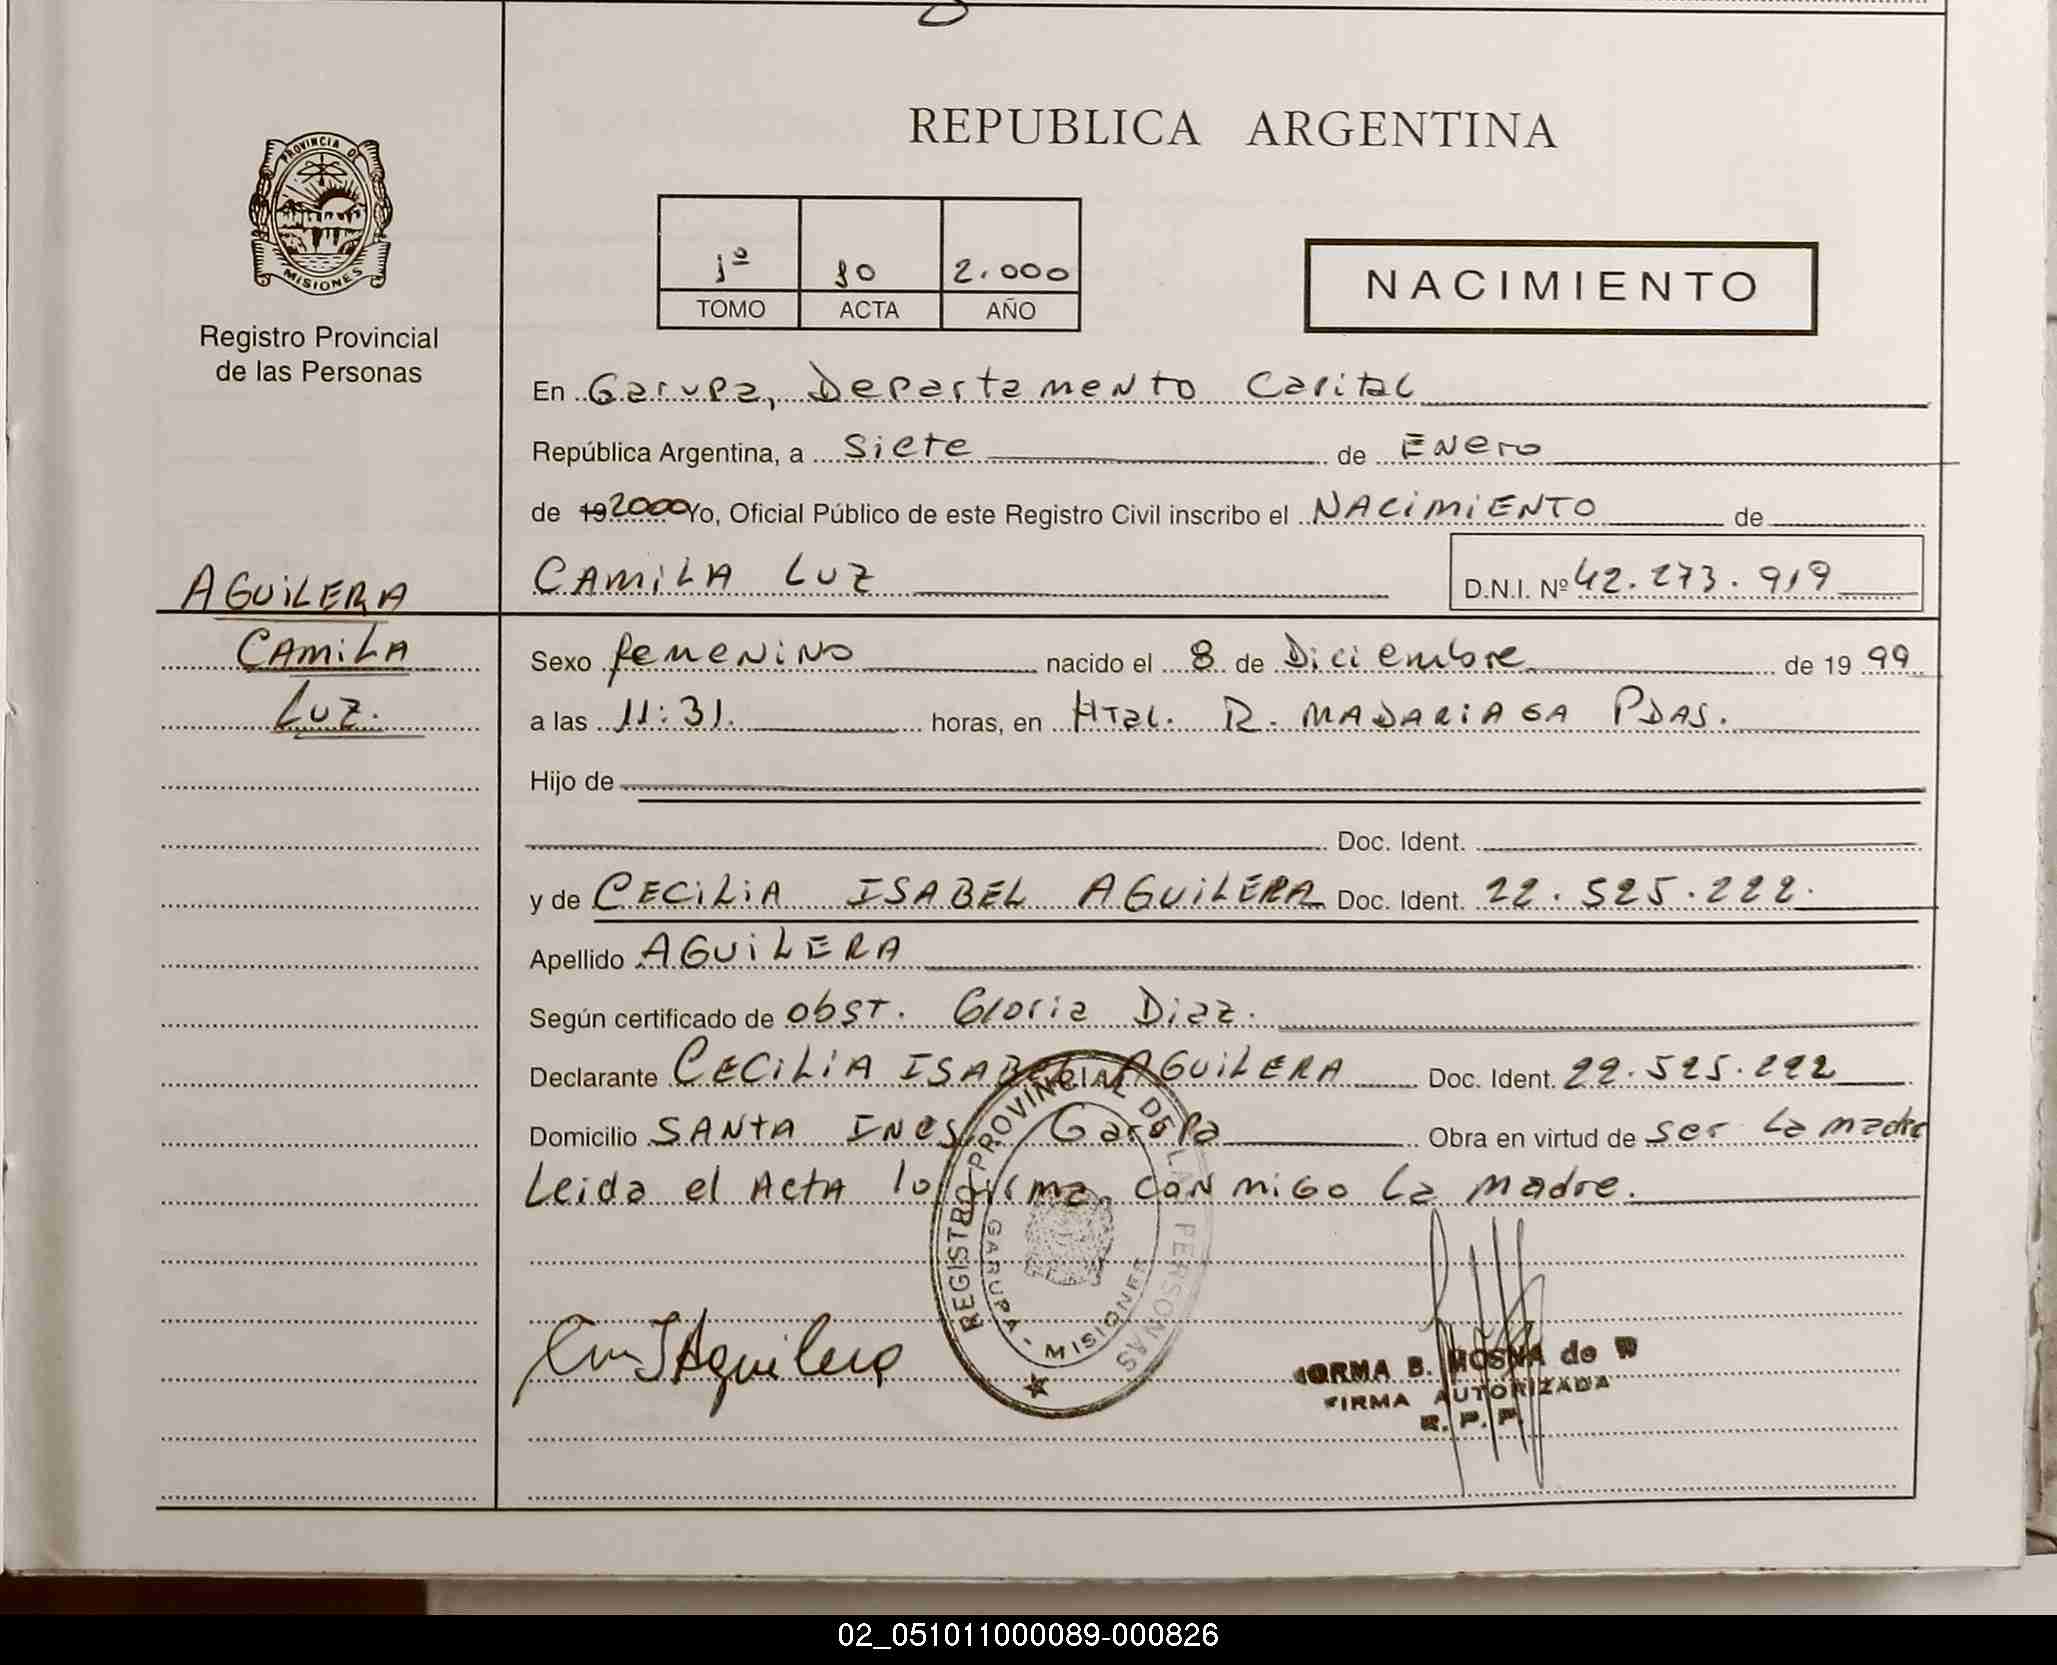 REPUBLICA ARGENTINA
PROVINCIA DE
MISIONES
Registro Provincial
de las Personas
1º 10 2.000
TOMO ACTA AÑO
NACIMIENTO
En Garupa, Departamento Capital
República Argentina, a Siete de Enero
de 19 2000 Yo, Oficial Público de este Registro Civil inscribo el NACIMIENTO de
CAMILA LUZ D.N.I. Nº 42.273.919
AGUILERA
CAMILA
LUZ.
Sexo femenino nacido el 8 de Diciembre de 19 99
a las 11:31. horas, en Htal. R. MADARIAGA PDAS.
Hijo de
Doc. Ident.
y de CECILIA ISABEL AGUILERA Doc. Ident. 22.525.222.
Apellido AGUILERA
Según certificado de obst. Gloria Diaz.
Declarante CECILIA ISABEL AGUILERA Doc. Ident. 22.525.222
Domicilio SANTA INES Garupa Obra en virtud de ser la madre
Leida el Acta la firma conmigo la madre.
REGISTRO PROVINCIAL DE LAS PERSONAS
GARUPA - MISIONES
Aguilera
NORMA B. MOSNA de
FIRMA AUTORIZADA
R. P. P.
02_051011000089-000826